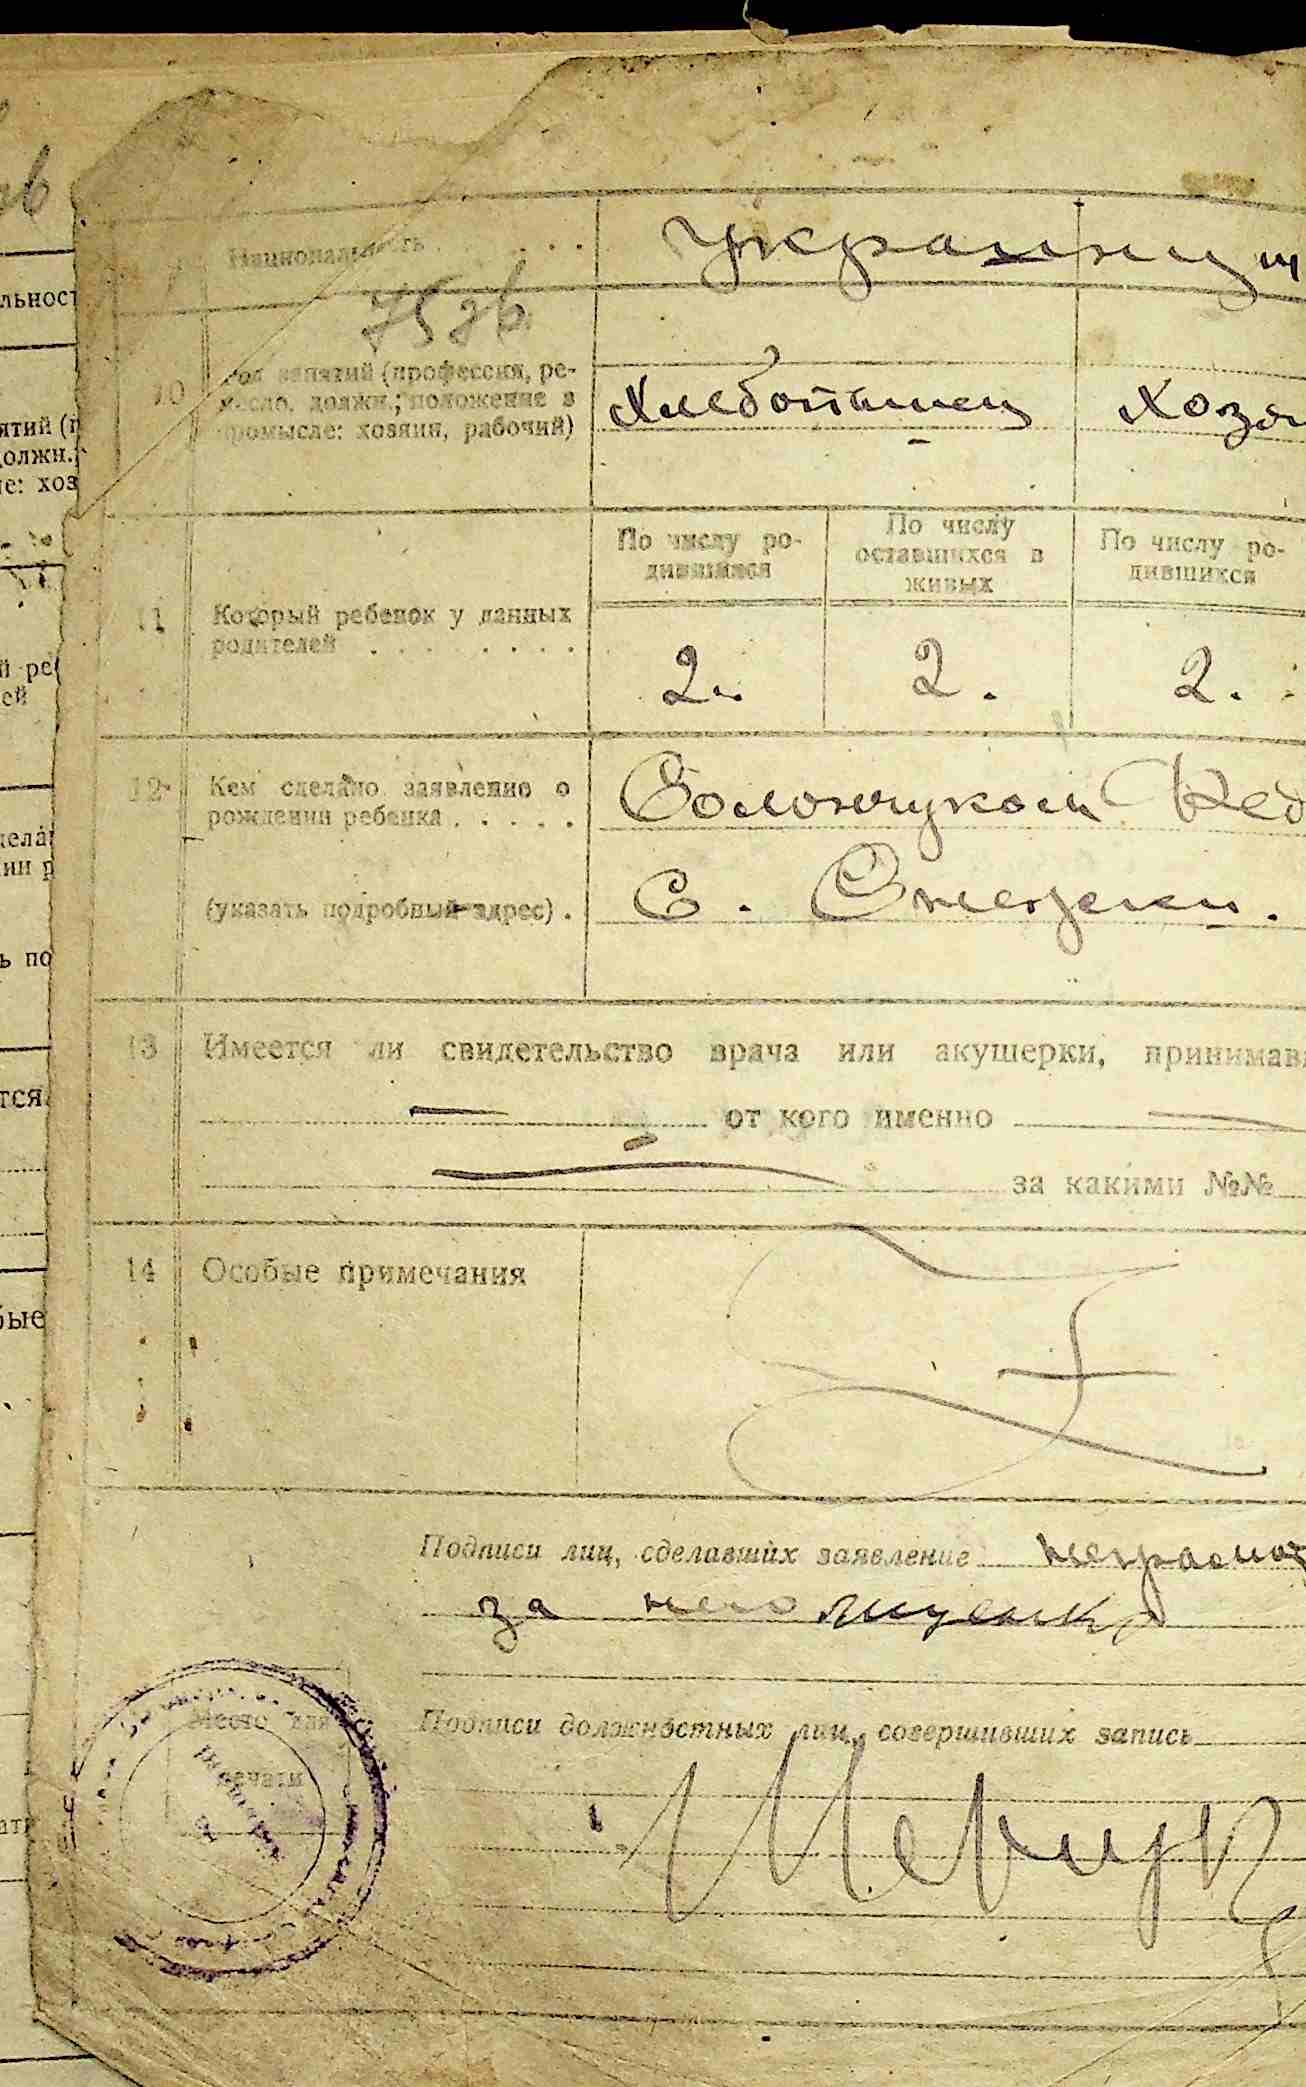 Национальность . . . . украинц
75 зв.
10 Род занятий (профессия, ре-
месло, должн.; положение в
промысле: хозяин, рабочий)
хлебопашец хозя
По числу ро-
дившихся
По числу
оставшихся в
живых
По числу ро-
дившихся
11 Который ребенок у данных
родителей . . . . . . . .
2. 2. 2.
12 Кем сделано заявление о
рождении ребенка . . . . .
(указать подробный адрес) .
С.
13 Имеется ли свидетельство врача или акушерки, принимав
— от кого именно —
— за какими №№
14 Особые примечания
Подписи лиц, сделавших заявление неграмот
за него
Место для
печати
Подписи должностных лиц, совершивших запись
льност
ятий (п
должн.;
ие: хоз
й ре
ей
дела
ии р
ь по
тся
бые